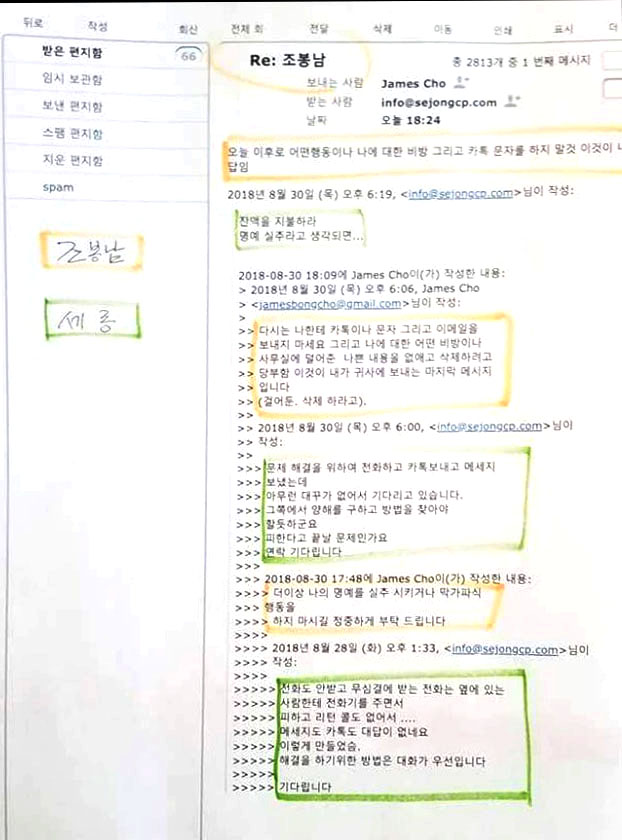 뒤로 작성 회신 전체 회 전달 삭제 이동 인쇄 표시 더
받은 편지함 66
임시 보관함
보낸 편지함
스팸 편지함
지운 편지함
spam
조봉남
세종
Re: 조봉남 총 2813개 중 1 번째 메시지
보내는 사람 James Cho
받는 사람 info@sejongcp.com
날짜 오늘 18:24
오늘 이후로 어떤행동이나 나에 대한 비방 그리고 카톡 문자를 하지 말것 이것이 나
답임
2018년 8월 30일 (목) 오후 6:19, <info@sejongcp.com>님이 작성:
잔액을 지불하라
명예 실추라고 생각되면...
2018-08-30 18:09에 James Cho이(가) 작성한 내용:
> 2018년 8월 30일 (목) 오후 6:06, James Cho
> <jamesbongcho@gmail.com>님이 작성:
>
>> 다시는 나한테 카톡이나 문자 그리고 이메일을
>> 보내지 마세요 그리고 나에 대한 어떤 비방이나
>> 사무실에 덜어준 나쁜 내용을 없애고 삭제하려고
>> 당부함 이것이 내가 귀사에 보내는 마지막 메시지
>> 입니다
>> (걸어둔. 삭제 하라고).
>>
>> 2018년 8월 30일 (목) 오후 6:00, <info@sejongcp.com>님이
>> 작성:
>>
>>> 문제 해결을 위하여 전화하고 카톡보내고 메세지
>>> 보냈는데
>>> 아무런 대꾸가 없어서 기다리고 있습니다.
>>> 그쪽에서 양해를 구하고 방법을 찾아야
>>> 할듯하군요
>>> 피한다고 끝날 문제인가요
>>> 연락 기다립니다
>>>
>>> 2018-08-30 17:48에 James Cho이(가) 작성한 내용:
>>>> 더이상 나의 명예를 실추 시키거나 막가파식
>>>> 행동을
>>>> 하지 마시길 정중하게 부탁 드립니다
>>>>
>>>> 2018년 8월 28일 (화) 오후 1:33, <info@sejongcp.com>님이
>>>> 작성:
>>>>
>>>>> 전화도 안받고 무심결에 받는 전화는 옆에 있는
>>>>> 사람한테 전화기를 주면서
>>>>> 피하고 리턴 콜도 없어서 ....
>>>>> 메세지도 카톡도 대답이 없네요
>>>>> 이렇게 만들었슴.
>>>>> 해결을 하기위한 방법은 대화가 우선입니다
>>>>>
>>>>> 기다립니다